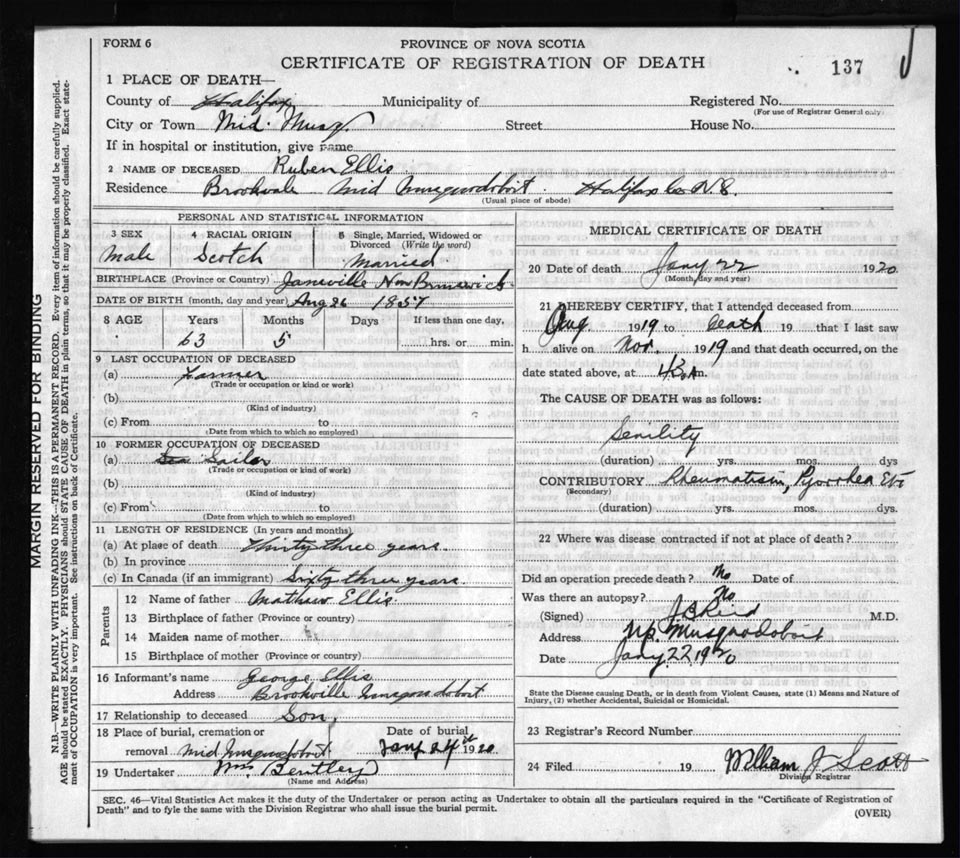 FORM 6
PROVINCE OF NOVA SCOTIA
CERTIFICATE OF REGISTRATION OF DEATH
137
1 PLACE OF DEATH—
County of Halifax Municipality of Registered No.
(For use of Registrar General only)
City or Town Mid. Musq. Street House No.
If in hospital or institution, give name
2 NAME OF DECEASED Ruben Ellis
Residence Brookvale Mid Musquodoboit Halifax Co N.S.
(Usual place of abode)
PERSONAL AND STATISTICAL INFORMATION
3 SEX 4 RACIAL ORIGIN 5 Single, Married, Widowed or Divorced (Write the word)
Male Scotch Married
BIRTHPLACE (Province or Country) Janeville New Brunswick
DATE OF BIRTH (month, day and year) Aug 26 1857
8 AGE Years Months Days If less than one day,
63 5 hrs. or min.
9 LAST OCCUPATION OF DECEASED
(a) Farmer
(Trade or occupation or kind or work)
(b)
(Kind of industry)
(c) From to
(Date from which to which so employed)
10 FORMER OCCUPATION OF DECEASED
(a) Sailor
(Trade or occupation or kind or work)
(b)
(Kind of industry)
(c) From to
(Date from which to which so employed)
11 LENGTH OF RESIDENCE (In years and months)
(a) At place of death thirty three years
(b) In province
(c) In Canada (if an immigrant) Sixty three years.
Parents
12 Name of father Mathew Ellis
13 Birthplace of father (Province or country)
14 Maiden name of mother
15 Birthplace of mother (Province or country)
16 Informant's name George Ellis
Address Brookville Musquodoboit
17 Relationship to deceased Son,
18 Place of burial, cremation or removal Mid Musquodoboit Date of burial Jany 24 1920
19 Undertaker Wm Bentley
(Name and Address)
MEDICAL CERTIFICATE OF DEATH
20 Date of death Jany 22 1920
(Month, day and year)
21 I HEREBY CERTIFY, that I attended deceased from
Aug. 1919 to death 19 that I last saw
h alive on Nov. 1919 and that death occurred, on the
date stated above, at m.
The CAUSE OF DEATH was as follows:
Senility
(duration) yrs. mos. dys
CONTRIBUTORY Rheumatism, Pyorrhea Etc
(Secondary)
(duration) yrs. mos. dys.
22 Where was disease contracted if not at place of death?
Did an operation precede death? No Date of
Was there an autopsy? No
(Signed) Reid M.D.
Address Up. Musquodoboit
Date Jany 22, 1920
State the Disease causing Death, or in death from Violent Causes, state (1) Means and Nature of
Injury, (2) whether Accidental, Suicidal or Homicidal.
23 Registrar's Record Number
24 Filed 19 William J Scott
Division Registrar
SEC. 46—Vital Statistics Act makes it the duty of the Undertaker or person acting as Undertaker to obtain all the particulars required in the "Certificate of Registration of
Death" and to fyle the same with the Division Registrar who shall issue the burial permit.
(OVER)
MARGIN RESERVED FOR BINDING
N.B—WRITE PLAINLY WITH UNFADING INK—THIS IS A PERMANENT RECORD. Every item of information should be carefully supplied.
AGE should be stated EXACTLY. PHYSICIANS should STATE CAUSE OF DEATH in plain terms, so that it may be properly classified. Exact state-
ment of OCCUPATION is very important. See instructions on back of Certificate.